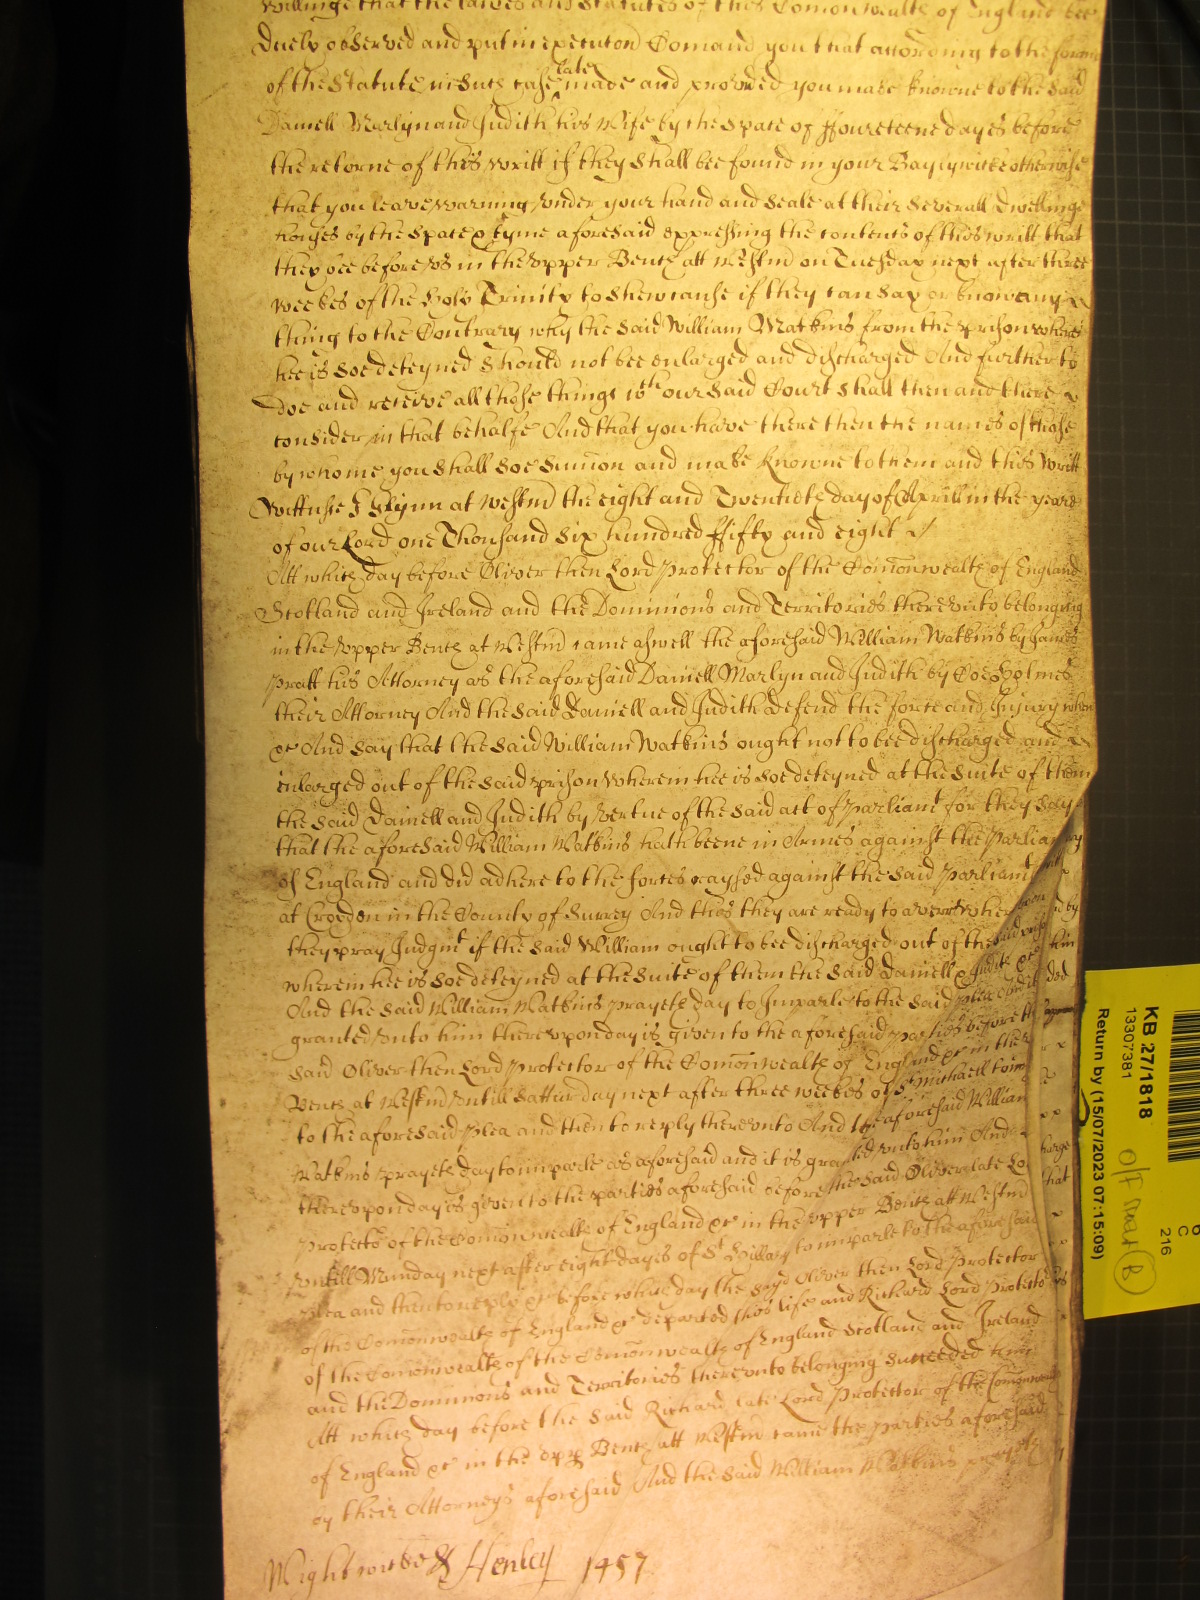 willinge that the lawes and statutes of this Comonwealth of England bee
Duely observed and put in execution Comand you that according to the forme
of the Statute in such case late made and provided you make knowne to the said
Daniell Marlyn and Judith his Wife by the space of ffourteene dayes before
the retorne of this writt if they shall bee found in your Baylywicke otherwise
that you leave warning under your hand and seale at their severall dwellinge
houses by the space & tyme aforesaid expressing the contents of this writt that
they bee before us in the upper Bench att Westm̃ on Tuesday next after three
weekes of the holy Trinity to shew cause if they can say or know any
thing to the Contrary why the said William Watkins from the prison where
hee is soe deteyned should not bee enlarged and discharged And further to
doe and receive all those things wch our said Court shall then and there
consider in that behalfe And that you have there then the names of those
by whome you shall soe sum̃on and make knowne to them and this writt
Wittnesse J Glynn at Westm̃ the eight and Twentieth day of Aprill in the yeare
of our Lord one Thousand six hundred ffifty and eight
Att which day before Oliver then Lord Protector of the Com̃onwealth of England
Scotland and Ireland and the Dominions and Territories thereunto belonging
in the upper Bench at Westm̃ came aswell the aforesaid William Watkins by James
Pratt his Attorney as the aforesaid Daniell Marlyn and Judith by Holmes
their Attorney And the said Daniell and Judith defend the force and Injury when
&c And say that the said William Watkins ought not to bee discharged and
enlarged out of the said prison wherein hee is soe deteyned at the suite of them
the said Daniell and Judith by vertue of the said act of Parliamt for they say
that the aforesaid William Watkins hath beene in Armes against the Parliam
of England and did adhere to the forces raysed against the said Parliamt
at Croydon in the County of Surrey And this they are ready to averr wher
they pray Judgmt if the said William ought to bee discharged out of the said
wherein hee is soe deteyned at the suite of them the said Daniell & Judith &c
And the said William Watkins prayeth day to Imparle to the said plea And it
granted unto him thereupon day is given to the aforesaid parties before the
said Oliver then Lord Protector of the Com̃onwealth of England &c in the
Bench at Westm̃ untill Satturday next after three weekes of St Michaell to im
to the aforesaid plea and then to reply thereunto And the aforesaid William
Watkins prayeth day to imparle as aforesaid and it is granted unto him And
thereupon day is given to the parties aforesaid before the said Oliver late Lo
Protector of the Com̃onwealth of England &c in the upper Bench att Westm̃
untill Munday next after eight dayes of St Hillary to imparle to the aforesaid
plea and then to reply &c before which day the sayd Oliver then Lord Protector
of the Com̃onwealth of England &c departed this life and Richard Lord Protector
of the Com̃onwealth of the Com̃onwealth of England Scotland and Ireland
and the Dominions and Territories thereunto belonging succeeded him
Att which day before the said Richard late Lord Protector of the Com̃onwea
of England &c in the upp Bench att Westm̃ came the parties aforesaid
by their Attorneys aforesaid And the said William Watkins prayeth
Wightwicke & Henley 1457
KB 27/1818
13307381
Return by (15/07/2023 07:15:09)
216
C